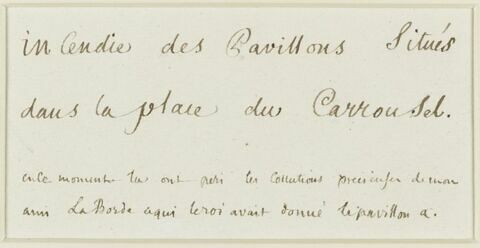 incendie des Pavillons Situés
dans la place du Carrousel.
en ce moment la ont peri les Collections precieuses de mon
ami La Borde a qui le roi avait donné le pavillon a.